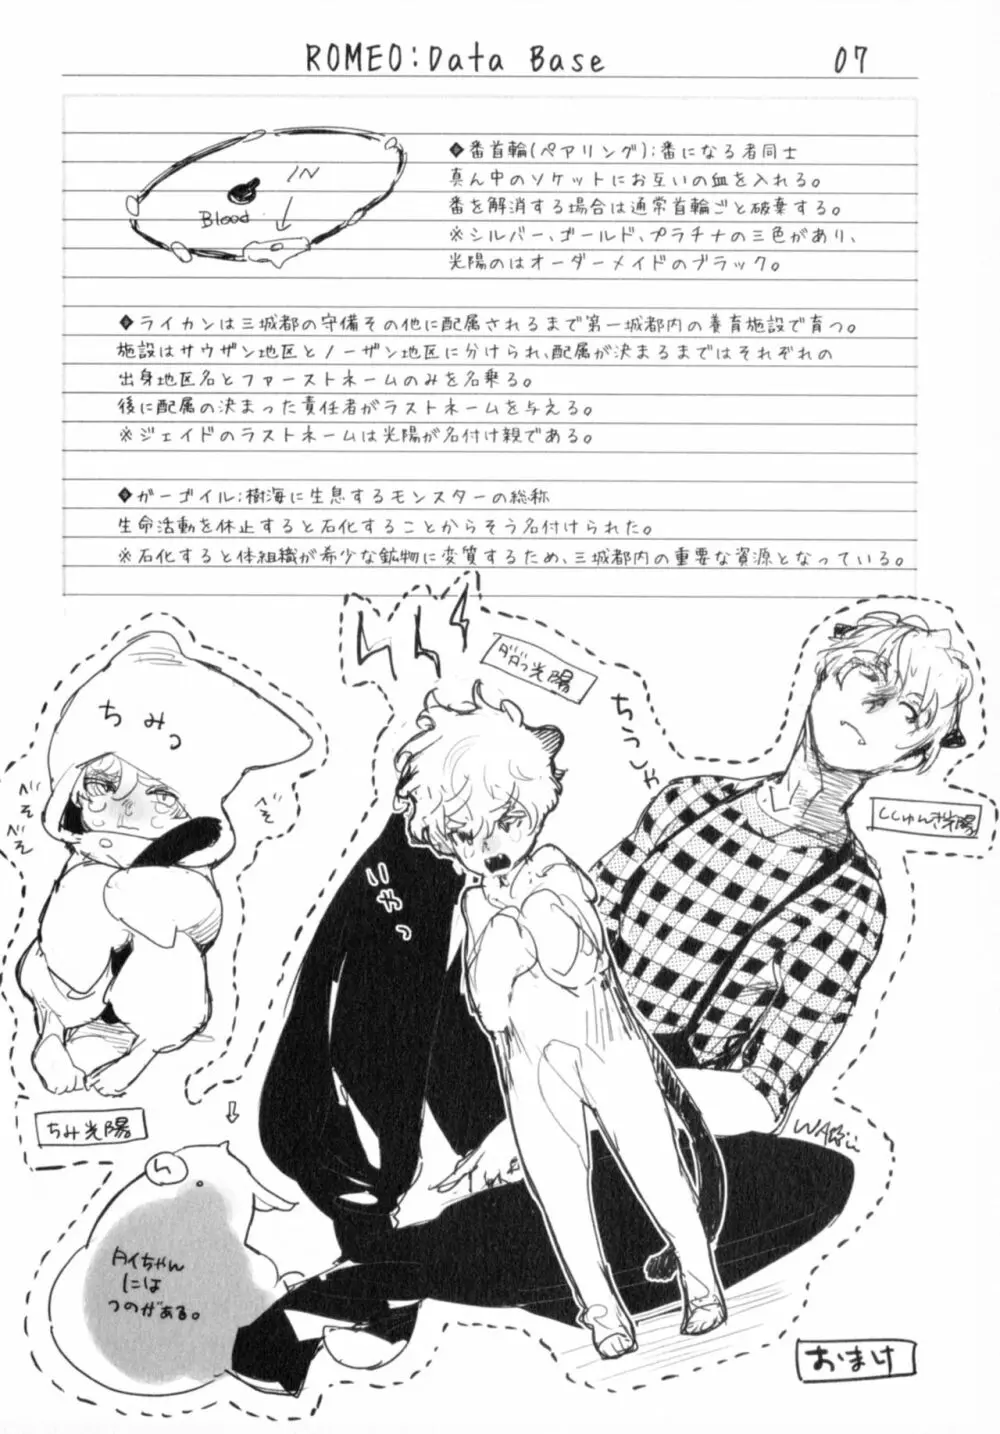 ROMEO:Data Base
07
IN
Blood
◆番首輪(ペアリング);番になる者同士
真ん中のソケットにお互いの血を入れる。
番を解消する場合は通常首輪ごと破棄する。
※シルバー、ゴールド、プラチナの三色があり、
光陽のはオーダーメイドのブラック。
◆ライカンは三城都の守備その他に配属されるまで第一城都内の養育施設で育つ。
施設はサウザン地区とノーザン地区に分けられ、配属が決まるまではそれぞれの
出身地区名とファーストネームのみを名乗る。
後に配属の決まった責任者がラストネームを与える。
※ジェイドのラストネームは光陽が名付け親である。
◆ガーゴイル;樹海に生息するモンスターの総称
生命活動を休止すると石化することからそう名付けられた。
※石化すると体組織が希少な鉱物に変質するため、三城都内の重要な資源となっている。
ダダっ光陽
ちみっ
ちうしゃ
べそべそ
ししゅんき光陽
いやっ
ちみ光陽
タイちゃん
には
つのがある。
おまけ